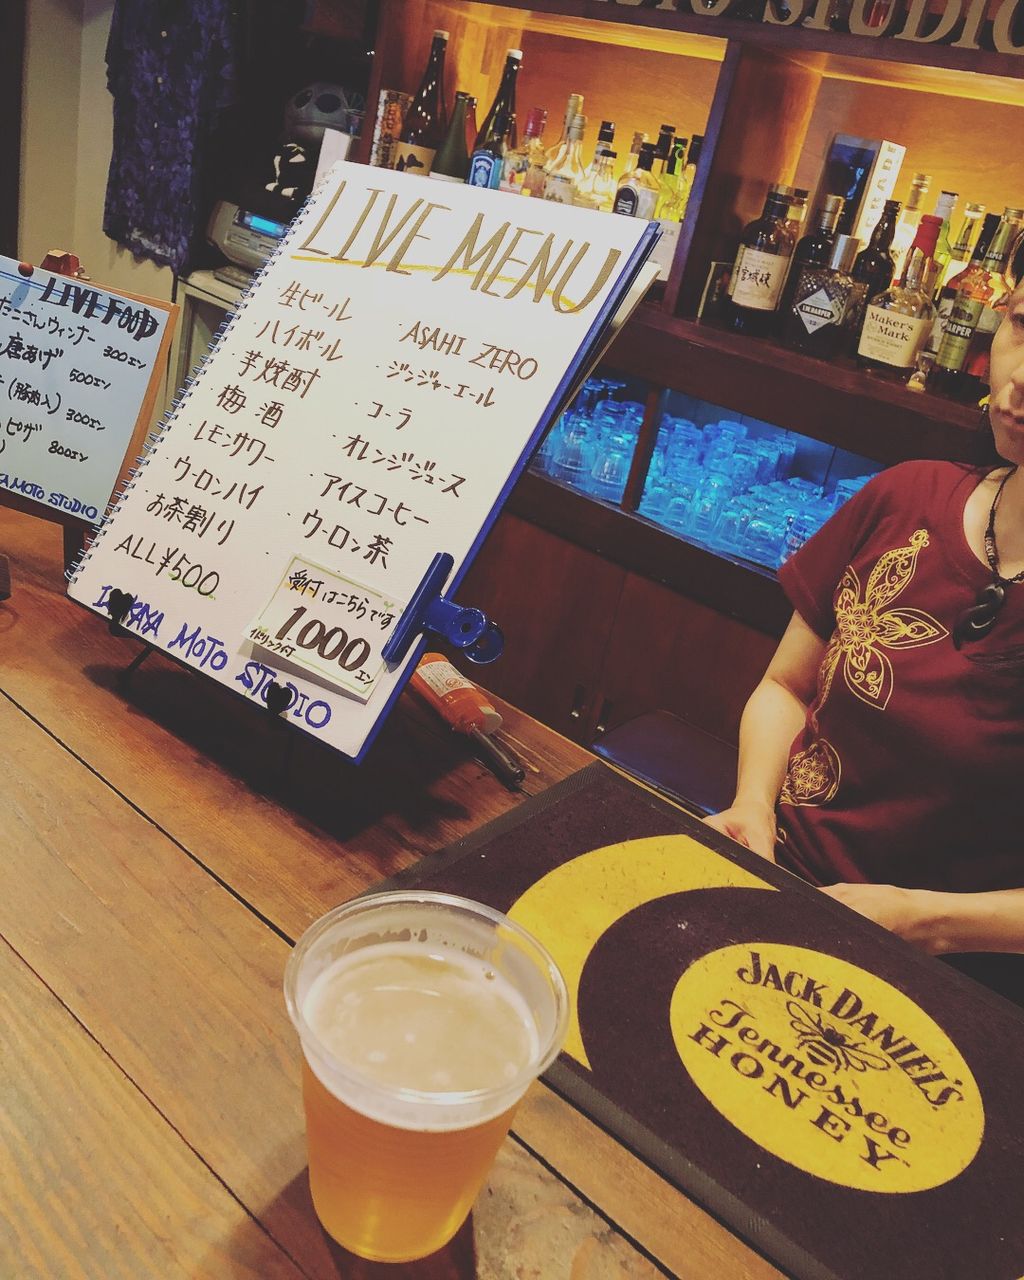 STUDIO
LIVE FOOD
たこさんウィンナー 300エン
唐あげ 500エン
(豚肉入) 300エン
ピザ 800エン
MOTO STUDIO
LIVE MENU
生ビール
ハイボール
芋焼酎
梅酒
レモンサワー
ウーロンハイ
お茶割り
ALL ¥500
ASAHI ZERO
ジンジャーエール
コーラ
オレンジジュース
アイスコーヒー
ウーロン茶
受付はこちらです
1.000エン
1ドリンク付
IZAKAYA MOTO STUDIO
宮城峡
I.W. HARPER
Maker's
Mark
HARPER
JACK DANIEL'S
Tennessee
HONEY